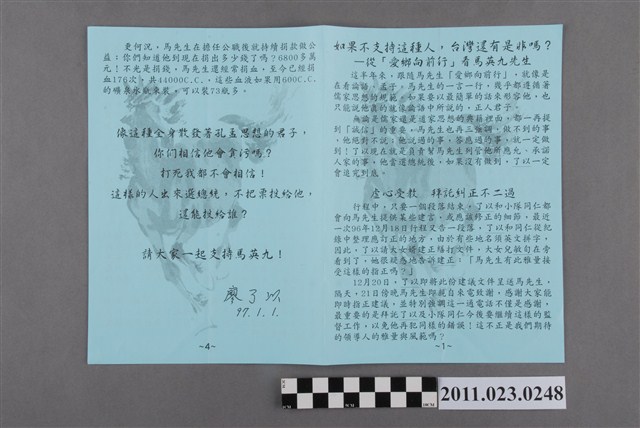 如果不支持這種人，台灣還有是非嗎？
—從「愛鄉向前行」看馬英九先生
這半年來，跟隨馬先生「愛鄉向前行」，就像是
在看論語、孟子，馬先生的一言一行，幾乎都遵循著
儒家思想的規範，如果要以最簡單的話來形容他，也
只能說他真的就像論語中所說的，正人君子。
無論是儒家還是道家思想的典籍裡面，都一再提
到「誠信」的重要，馬先生也再三強調，做不到的事
，他絕對不說；他說過的事，答應過的事，就一定做
到！了以現在就是負責幫馬先生列管他所應允、承諾
人家的事，他當選總統後，如果沒有做到，了以一定
會追究到底。
虛心受教　拜託糾正不二過
行程中，只要一個段落結束，了以和小隊同仁都
會向馬先生提供某些建言，或應該修正的細節，最近
一次96年12月18日行程又告一段落，了以和同仁從紀
錄中整理應訂正的地方，由於有些地名須英文拼字，
因此，了以請大女婿建正繕打文件，大女兒敏如在旁
看到了，她很疑惑地告訴建正：「馬先生有此雅量接
受這樣的指正嗎？」
12月20日，了以即將此份建議文件呈送馬先生，
隔天，21日傍晚馬先生即親自來電致謝，感謝大家能
即時指正建議，並特別強調這一通電話不僅是感謝，
最重要的是拜託了以及小隊同仁今後要繼續這樣的監
督工作，以免他再犯同樣的錯誤！這不正是我們期待
的領導人的雅量與風範嗎？
~1~
更何況，馬先生在擔任公職後就持續捐款做公
益；你們知道他到現在捐出多少錢了嗎？6800多萬
元！不光是捐錢，馬先生還經常捐血，至今已經捐
血176次，共44000C.C.，這些血液如果用600C.C.
的礦泉水瓶來裝，可以裝73瓶多。
像這種全身散發著孔孟思想的君子，
你們相信他會貪污嗎？
打死我都不會相信！
這樣的人出來選總統，不把票投給他，
還能投給誰？
請大家一起支持馬英九！
廖了以
97.1.1.
~4~
2011.023.0248